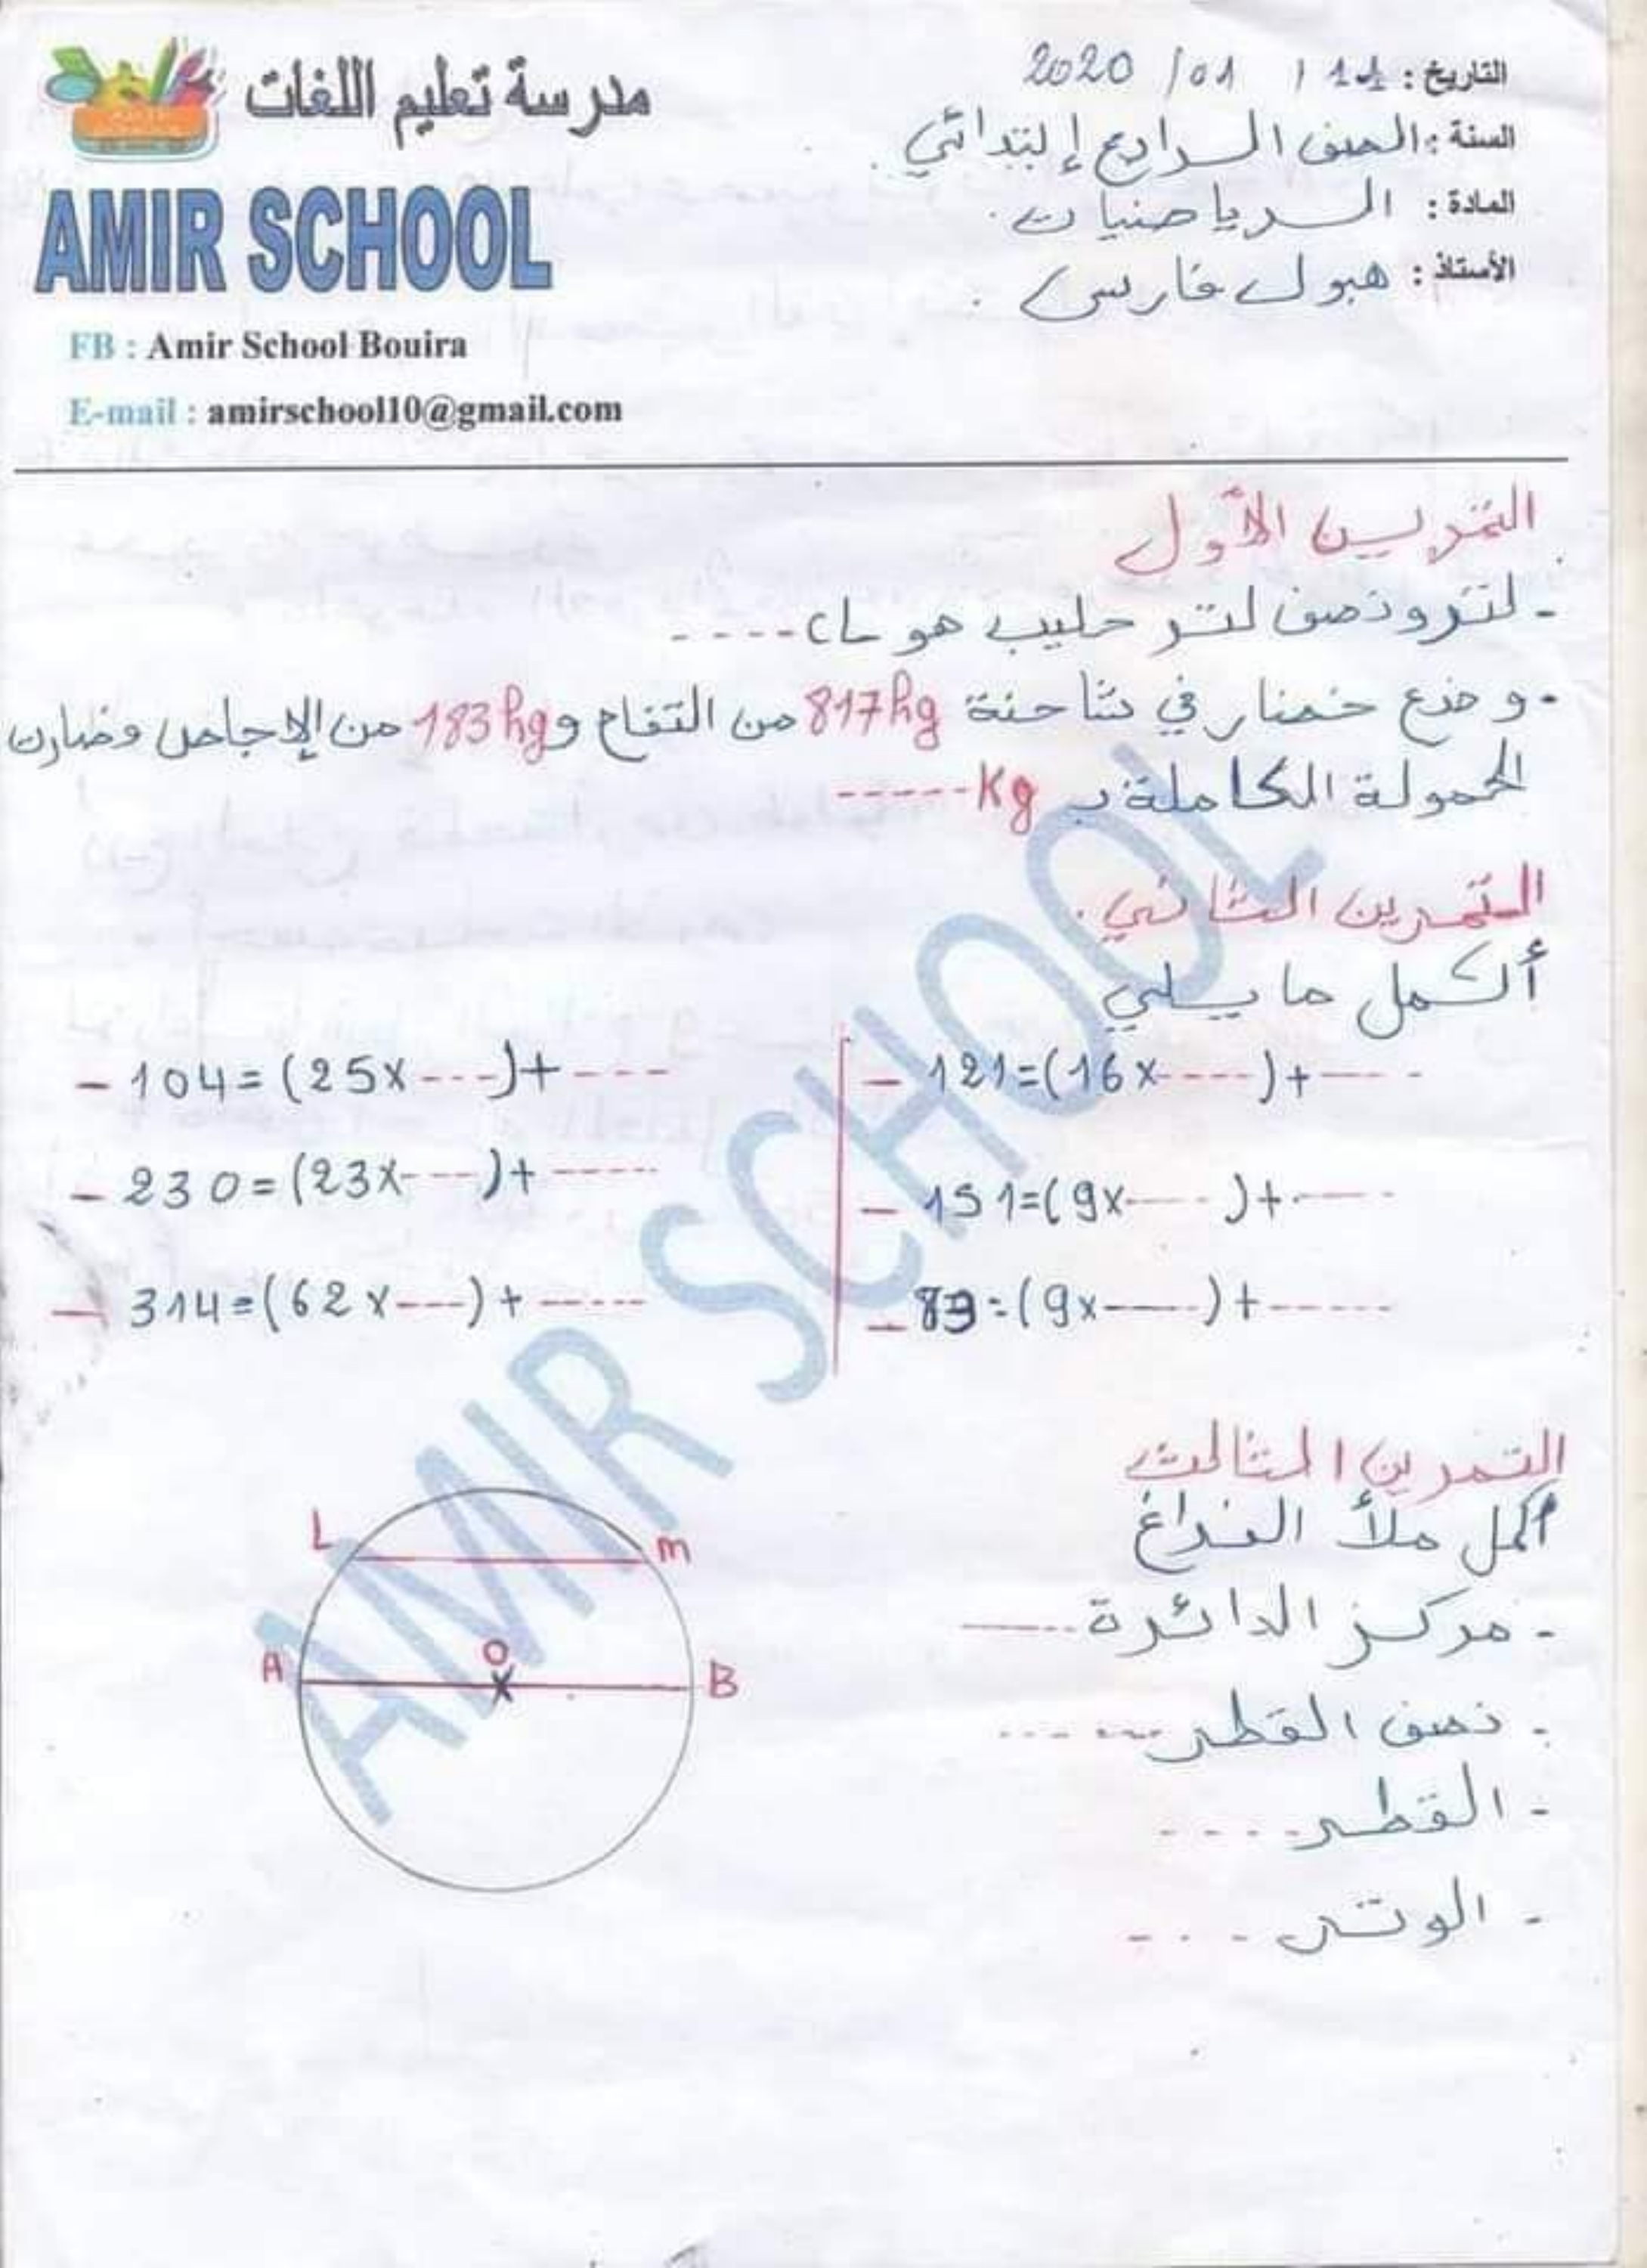 مدرسة تعليم اللغات
AMIR SCHOOL
FB : Amir School Bouira
E-mail : amirschool10@gmail.com
التاريخ : 11 / 01 / 2020
السنة : الصف الرابع إبتدائي .
المادة : الرياضيات .
الأستاذ : هبول فارس .
التمرين الأول
- لتر ونصف لتر حليب هو cL ----
- وضع خضار في شاحنة 817hg من التفاح و 183hg من الإجاص وصارت
الحمولة الكاملة بـ Kg -----
التمرين الثاني .
أكمل ما يلي
- 104=(25x---)+----
- 121=(16x----)+----
- 230=(23x---)+-----
- 151=(9x----)+----
- 314=(62x---)+-----
- 89=(9x----)+-----
التمرين الثالث
أكمل ملأ الفراغ
- مركز الدائرة ----
- نصف القطر ----
- القطر ----
- الوتر ----
L
m
A
O
B
AMIR SCHOOL